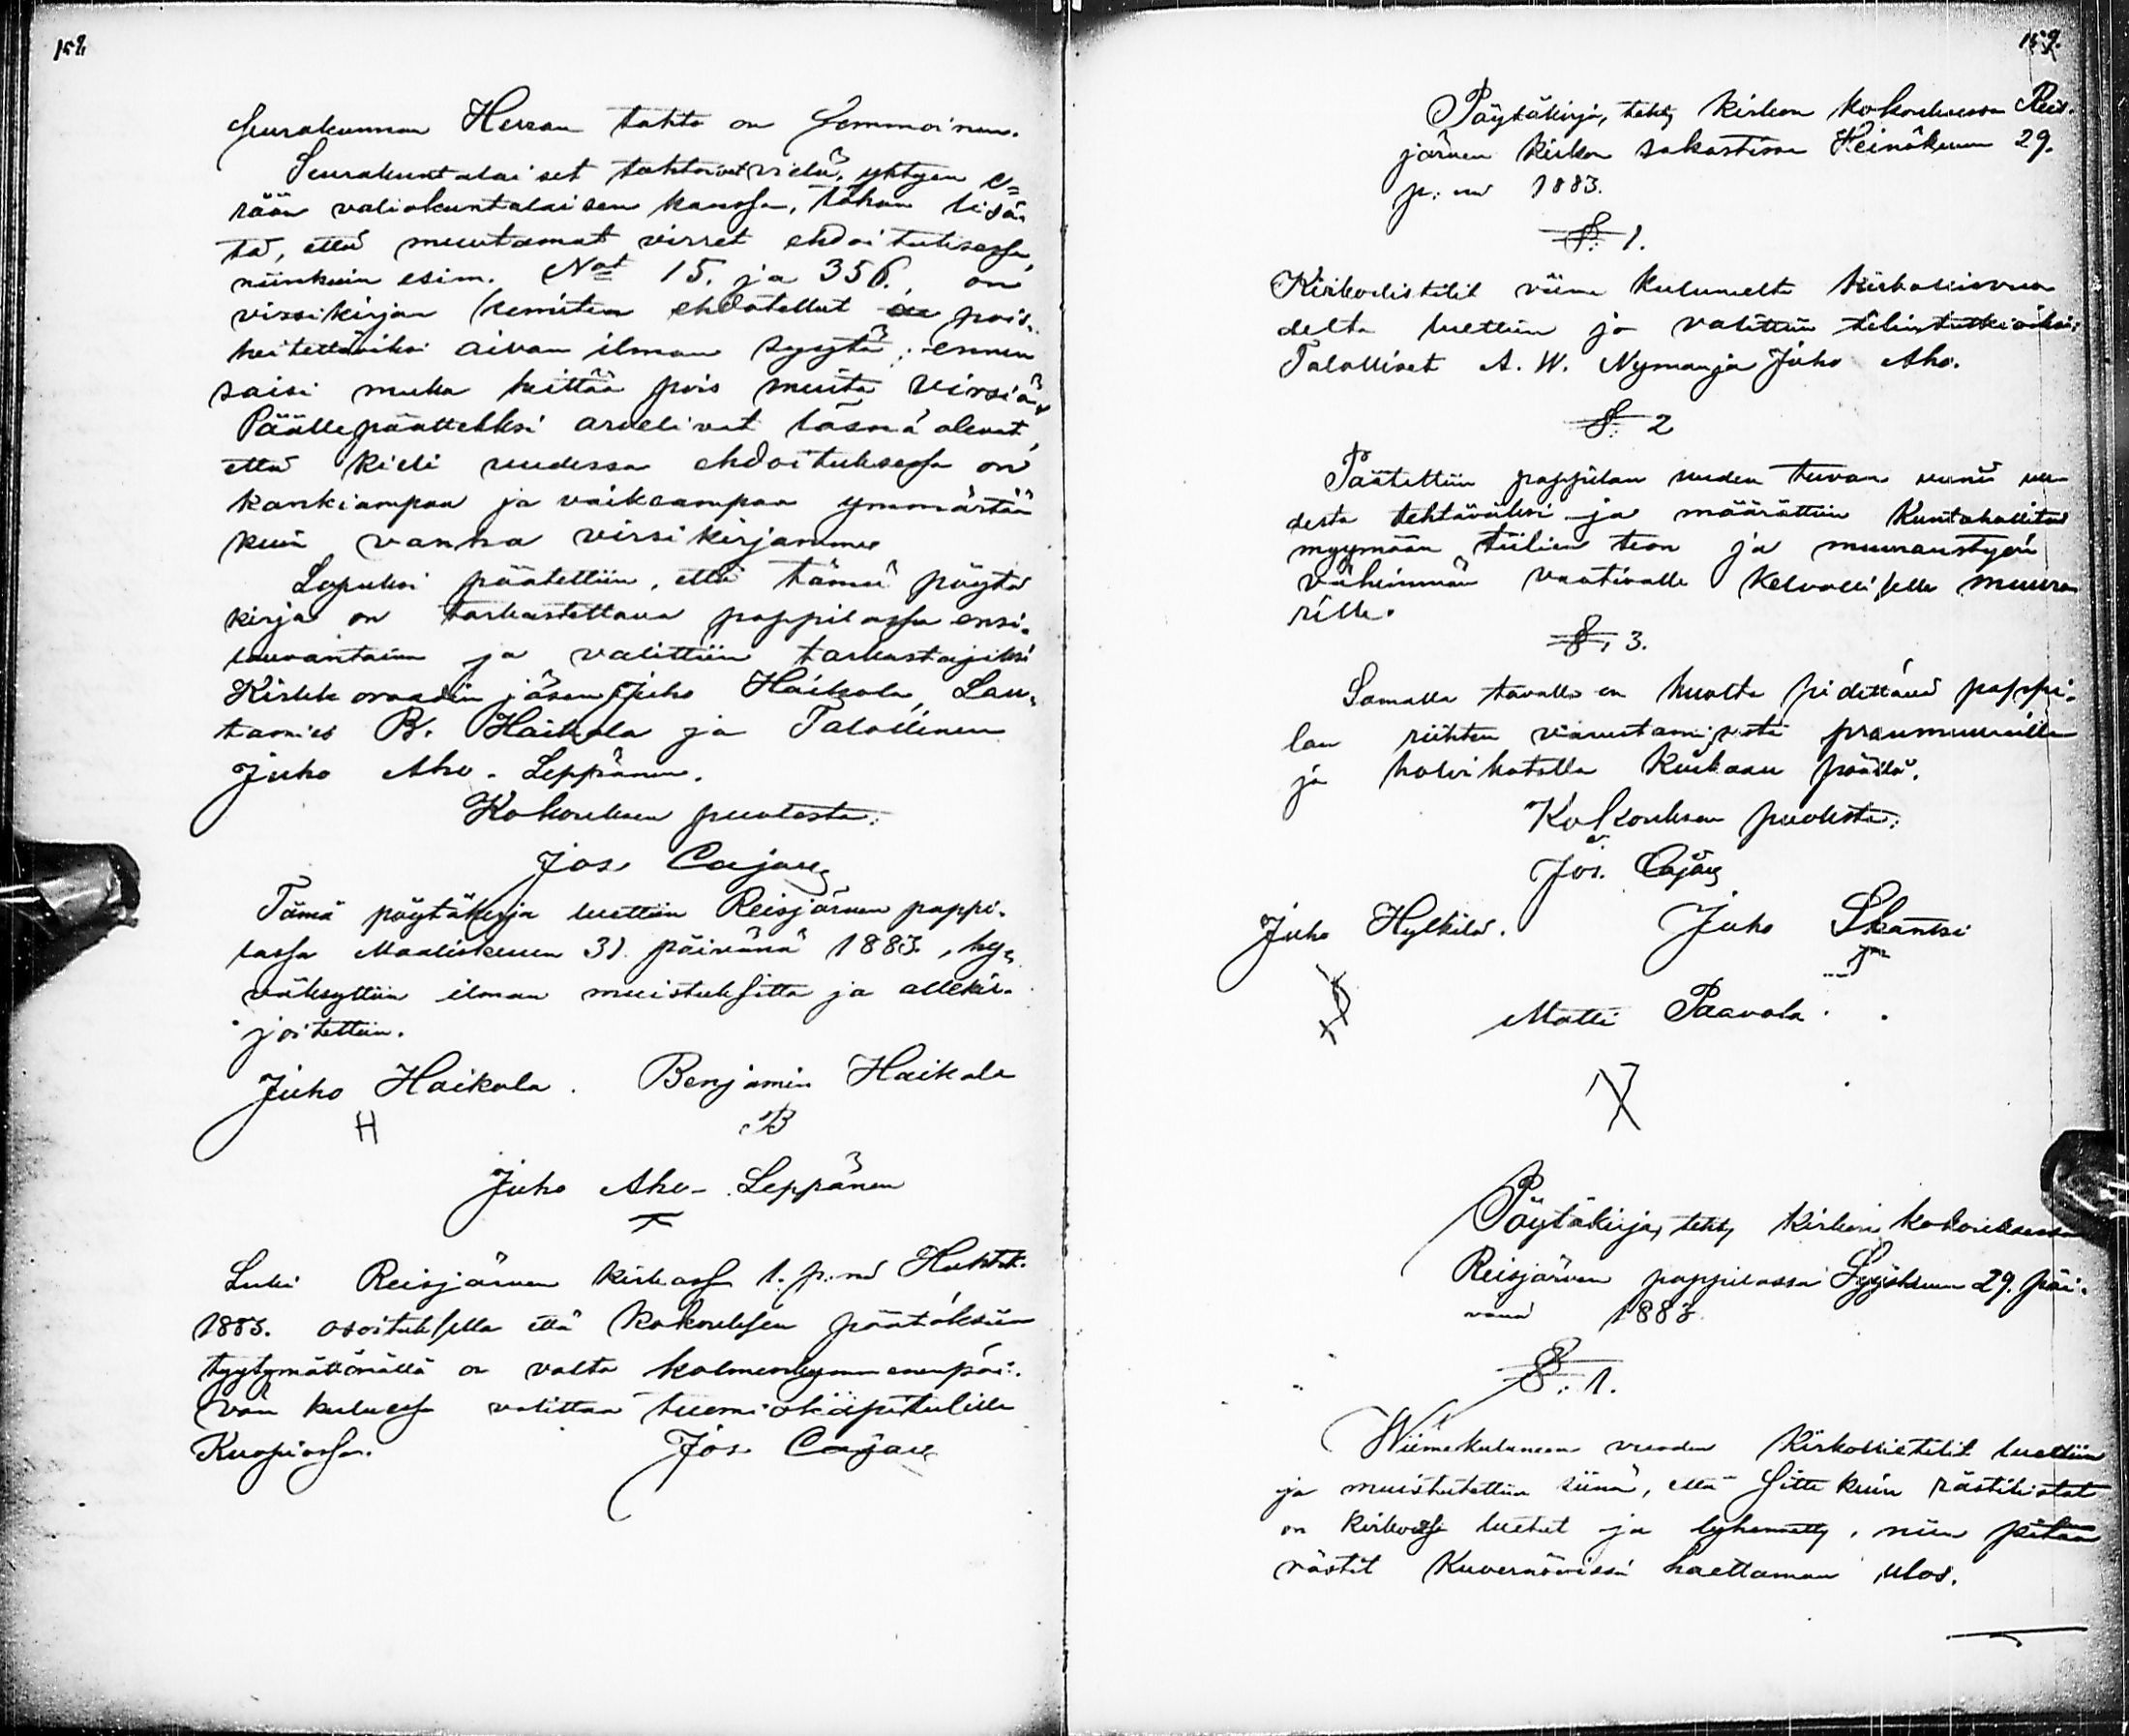 158.
Seurakunnan Herran tahto on semmoinen.
Seurakuntalaiset tahtoivat vielä, yhtyen e=
rään valiokuntalaisen kanssa, tähän lisä-
tä, että muutamat virret ehdoituksessa,
niinkuin esim. Not 15. ja 356., on
virsikirjan komitea ehdotellut pois-
heitettäviksi aivan ilman syytä; ennen
saisi muka heittää pois muita virsiä.
Päälle päätteeksi arvelivat läsnä olevat,
että kieli uudessa ehdoituksessa on
kankiampaa ja vaikeampaa ymmärtää
kuin vanha virsikirjamme
Lopuksi päätettiin, että tämä pöytä
kirja on tarkastettava pappilassa ensi-
lauvantaina ja valittiin tarkastajiksi
Kirkkoraadin jäsen Juho Haikola, Lau-
tamies B. Haikola ja Talollinen
Juho Aho-Leppänen.
Kokouksen puolesta:
Jos. Cajan
Tämä pöytäkirja luettiin Reisjärven pappi-
lassa Maaliskuun 31. päivänä 1883., hy-
väksyttiin ilman muistuksitta ja allekir-
joitettiin.
Juho Haikola. Benjamin Haikola
H B
Juho Aho-Leppänen
Luki Reisjärven kirkossa 1. p:nä Huhtik.
1883. osoituksella että kokouksen päätöksiin
tyytymättömällä on valta kolmenkymmenen päi-
vän kuluessa valittaa tuomiokapitulille
Kuopiossa. Jos. Cajan
159.
Pöytäkirja, tehty kirkon kokouksessa Reis-
järven kirkon sakastissa Heinäkuun 29.
p:nä 1883.
§. 1.
Kirkollistilit viime kuluneelta kirkollisvuo
delta luettiin ja valittiin tilintutkioiksi:
Talolliset A. W. Nyman ja Juho Aho.
§. 2
Päätettiin pappilan uuden tuvan uuni uu
desta tehtäväksi ja määrättiin Kuntahallitus
myymään tiilien teon ja muuraustyön
vähimmän vaativalle kelvolliselle muura
rille.
§. 3.
Samalla tavalla on huolta pidettävä pappi-
lan riihten varustamisesta
ja holvikatolla kiukaan päällä.
Kokouksen puolesta:
Jos. Cajan
Juho Hylkilä. Juho Skantsi
Matti Paavola.
Pöytäkirja, tehty kirkon kokouksessa
Reisjärven pappilassa Syyskuun 29. päi-
vänä 1883.
§. 1.
Wiimekuluneen vuoden kirkollistilit luettiin
ja muistutettiin siinä, että sitte kuin rästilistat
on kirkossa luetut ja lyhennetty, niin pitää
rästit Kuvernöörissä haettaman ulos.